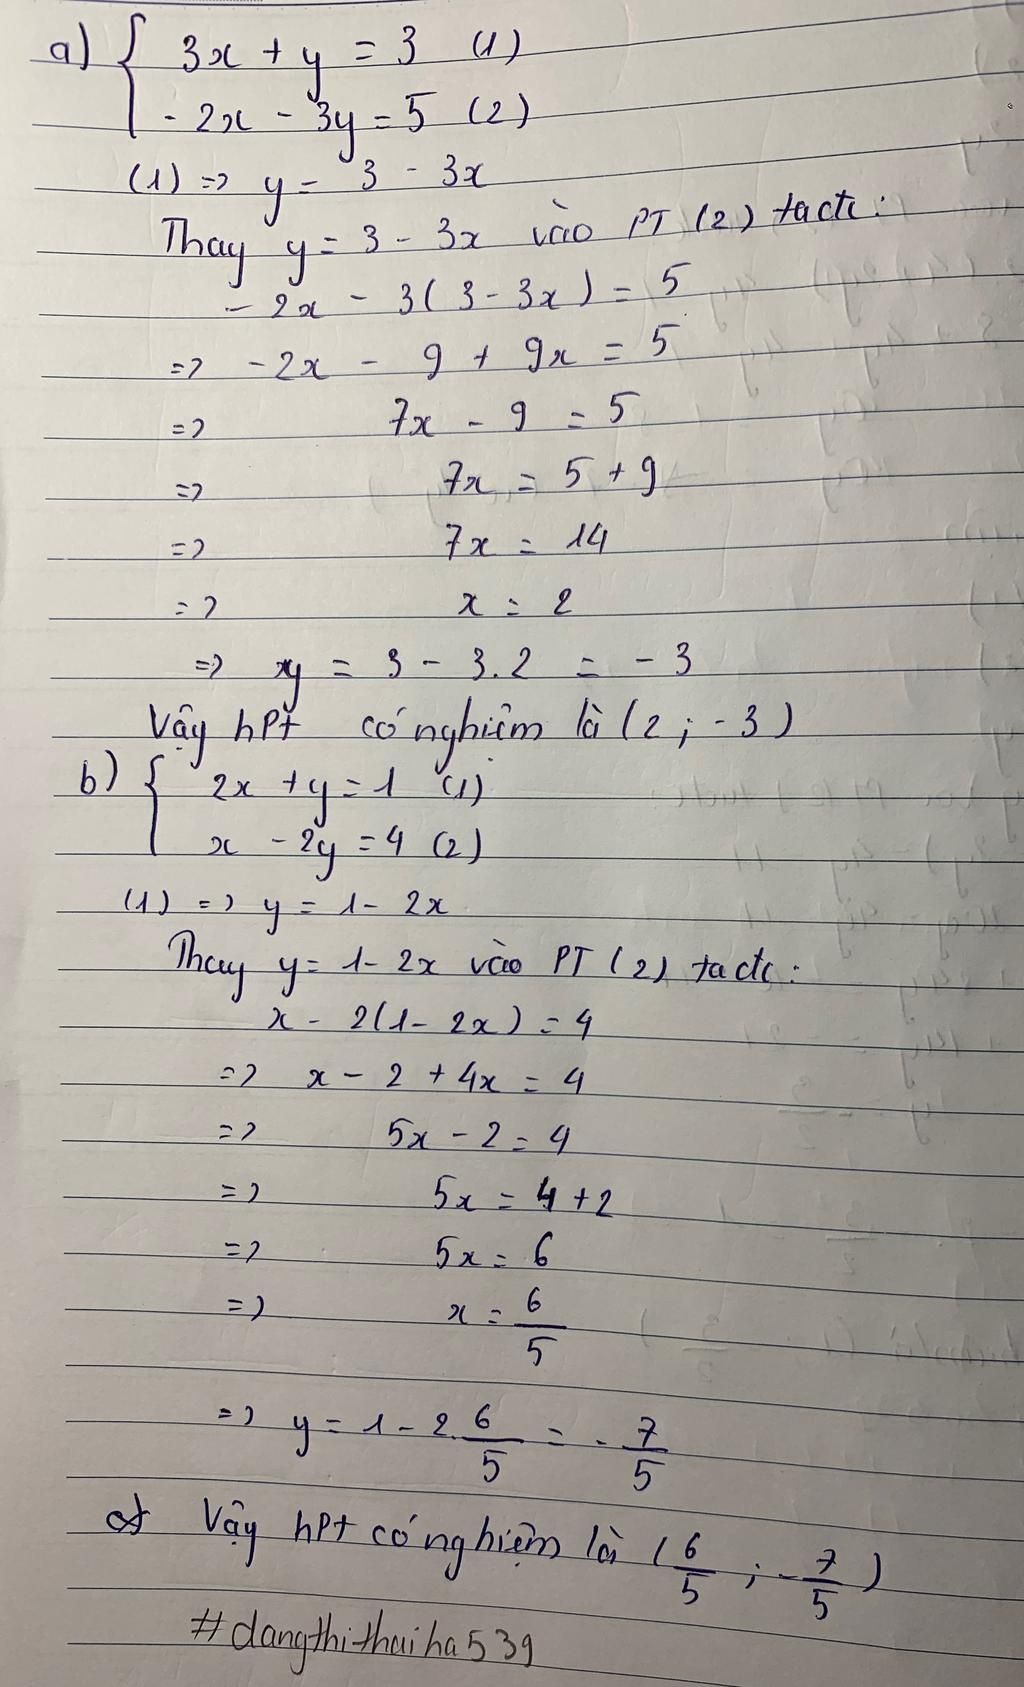 a) { 3x + y = 3 (1)
- 2x - 3y = 5 (2)
(1) => y = 3 - 3x
Thay y = 3 - 3x vào PT (2) tactc :
- 2x - 3( 3 - 3x ) = 5
=> - 2x - 9 + 9x = 5
=> 7x - 9 = 5
=> 7x = 5 + 9
=> 7x = 14
=> x = 2
=> y = 3 - 3.2 = - 3
Vậy hPt có nghiệm là (2 ; - 3 )
b) { 2x + y = 1 (1)
x - 2y = 4 (2)
(1) => y = 1 - 2x
Thay y = 1 - 2x vào PT (2) tactc :
x - 2(1 - 2x ) = 4
=> x - 2 + 4x = 4
=> 5x - 2 = 4
=> 5x = 4 + 2
=> 5x = 6
=> x = 6/5
=> y = 1 - 2. 6/5 = - 7/5
Vậy hPt có nghiệm là ( 6/5 ; - 7/5 )
#dangthithaiha539